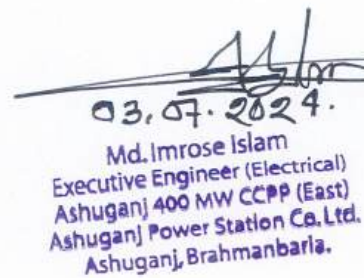 03.07.2024.
Md. Imrose Islam
Executive Engineer (Electrical)
Ashuganj 400 MW CCPP (East)
Ashuganj Power Station Co. Ltd.
Ashuganj, Brahmanbaria.